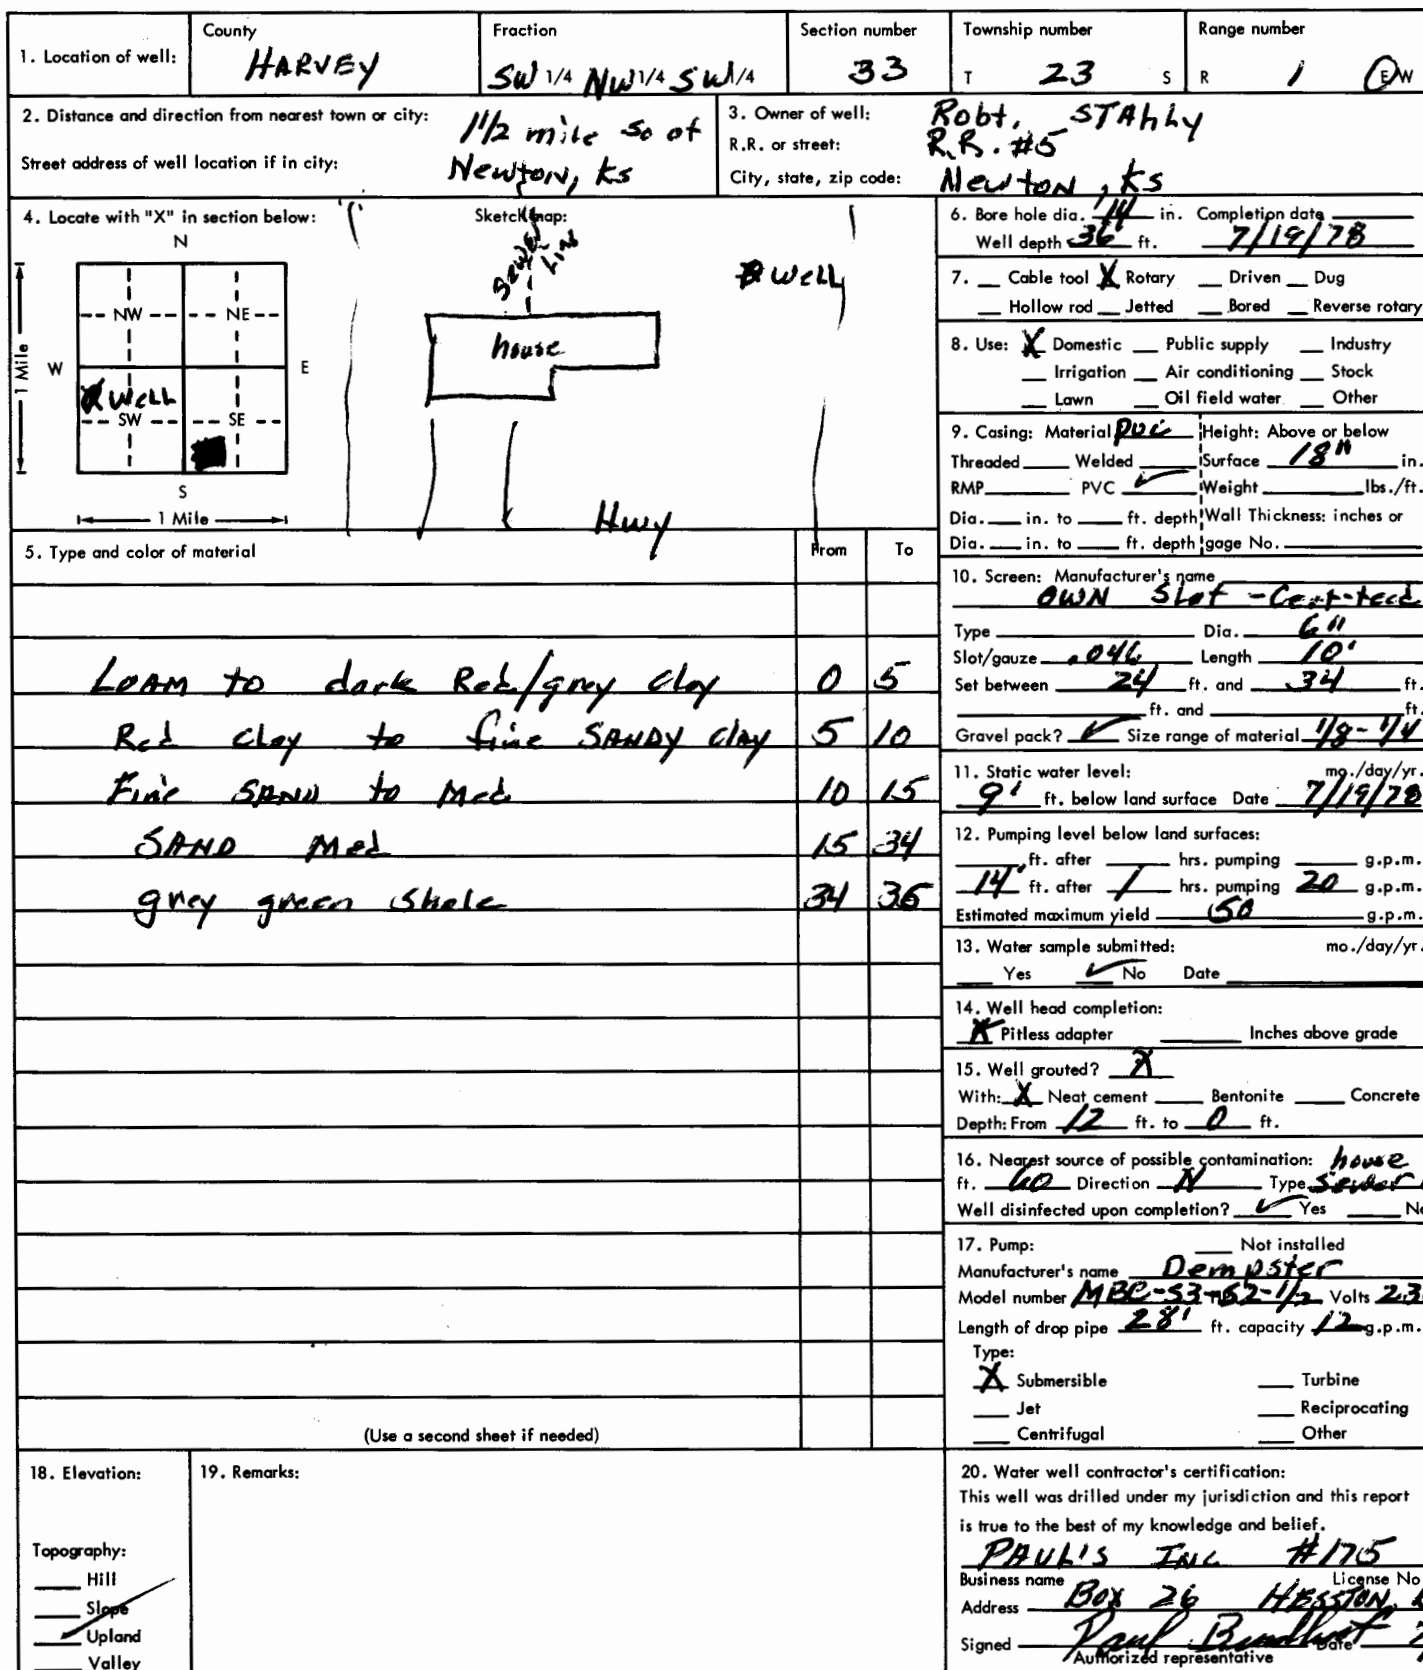 1. Location of well: County HARVEY Fraction SW 1/4 NW 1/4 SW 1/4 Section number 33 Township number T 23 S Range number R 1 E W
2. Distance and direction from nearest town or city: 1 1/2 mile so of
Street address of well location if in city: Newton, Ks
3. Owner of well: Robt. STAhly
R.R. or street: R.R. #5
City, state, zip code: Newton, Ks
4. Locate with "X" in section below:
N
NW NE
W E
X Well
SW SE
S
1 Mile
1 Mile
Sketch map:
Sewer Line
house
Well
Hwy
5. Type and color of material From To
LOAM to dark Red/grey clay 0 5
Red clay to fine SANDY clay 5 10
Fine SAND to Med 10 15
SAND Med 15 34
grey green shale 34 36
(Use a second sheet if needed)
6. Bore hole dia. 14 in. Completion date
Well depth 36 ft. 7/19/78
7. Cable tool X Rotary Driven Dug
Hollow rod Jetted Bored Reverse rotary
8. Use: X Domestic Public supply Industry
Irrigation Air conditioning Stock
Lawn Oil field water Other
9. Casing: Material PVC Height: Above or below
Threaded Welded Surface 18" in.
RMP PVC ✓ Weight lbs./ft.
Dia. in. to ft. depth Wall Thickness: inches or
Dia. in. to ft. depth gage No.
10. Screen: Manufacturer's name
OWN Slot - Cert-teed
Type Dia. 6"
Slot/gauze .046 Length 10'
Set between 24 ft. and 34 ft.
ft. and ft.
Gravel pack? ✓ Size range of material 1/8 - 1/4
11. Static water level: mo./day/yr.
9' ft. below land surface Date 7/19/78
12. Pumping level below land surfaces:
ft. after hrs. pumping g.p.m.
14' ft. after 1 hrs. pumping 20 g.p.m.
Estimated maximum yield 50 g.p.m.
13. Water sample submitted: mo./day/yr.
Yes ✓ No Date
14. Well head completion:
X Pitless adapter Inches above grade
15. Well grouted? X
With: X Neat cement Bentonite Concrete
Depth: From 12 ft. to 0 ft.
16. Nearest source of possible contamination: house
ft. 60 Direction N Type Sewer
Well disinfected upon completion? ✓ Yes No
17. Pump: Not installed
Manufacturer's name Dempster
Model number Volts 23
Length of drop pipe 28' ft. capacity 12 g.p.m.
Type:
X Submersible Turbine
Jet Reciprocating
Centrifugal Other
18. Elevation:
Topography:
Hill
Slope
✓ Upland
Valley
19. Remarks:
20. Water well contractor's certification:
This well was drilled under my jurisdiction and this report
is true to the best of my knowledge and belief.
PAUL'S INC #175
Business name License No
Address Box 26 HESSTON,
Signed Paul Date
Authorized representative